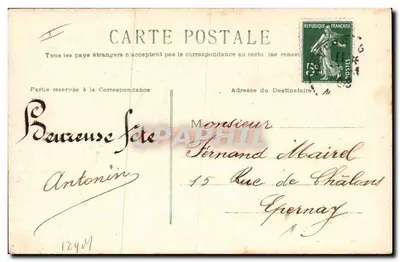 CARTE POSTALE
RÉPUBLIQUE FRANÇAISE
POSTES
Tous les pays étrangers n'acceptent pas la correspondance au recto (se
Partie réservée à la Correspondance
Adresse du Destinataire
Heureuse fête
Antonin
Monsieur
Fernand Mairel
15 Rue de Châlons
Epernay